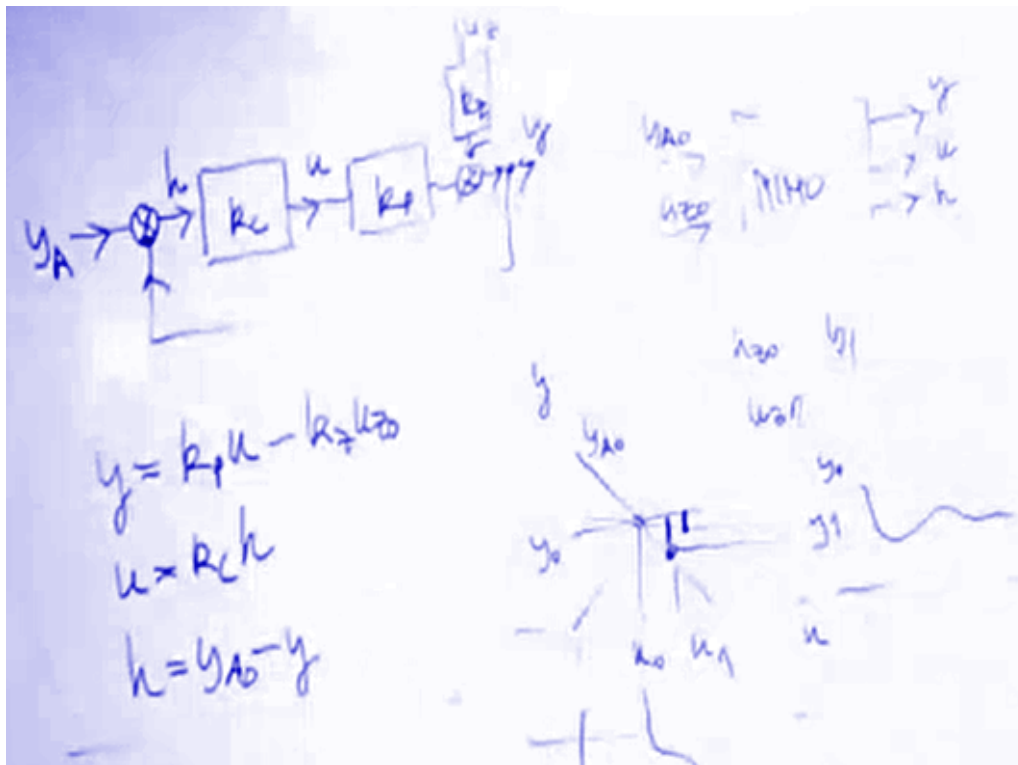 u_z
k_z
y
h
u
k_c
k_p
y_A
y_A0
u_z0
MIMO
y
u
h
y = k_p u - k_z u_z0
u = k_c h
h = y_A0 - y
y
y_A0
y_0
u_0
u_1
u_z0
y_1
u_z1
y_0
y_1
u